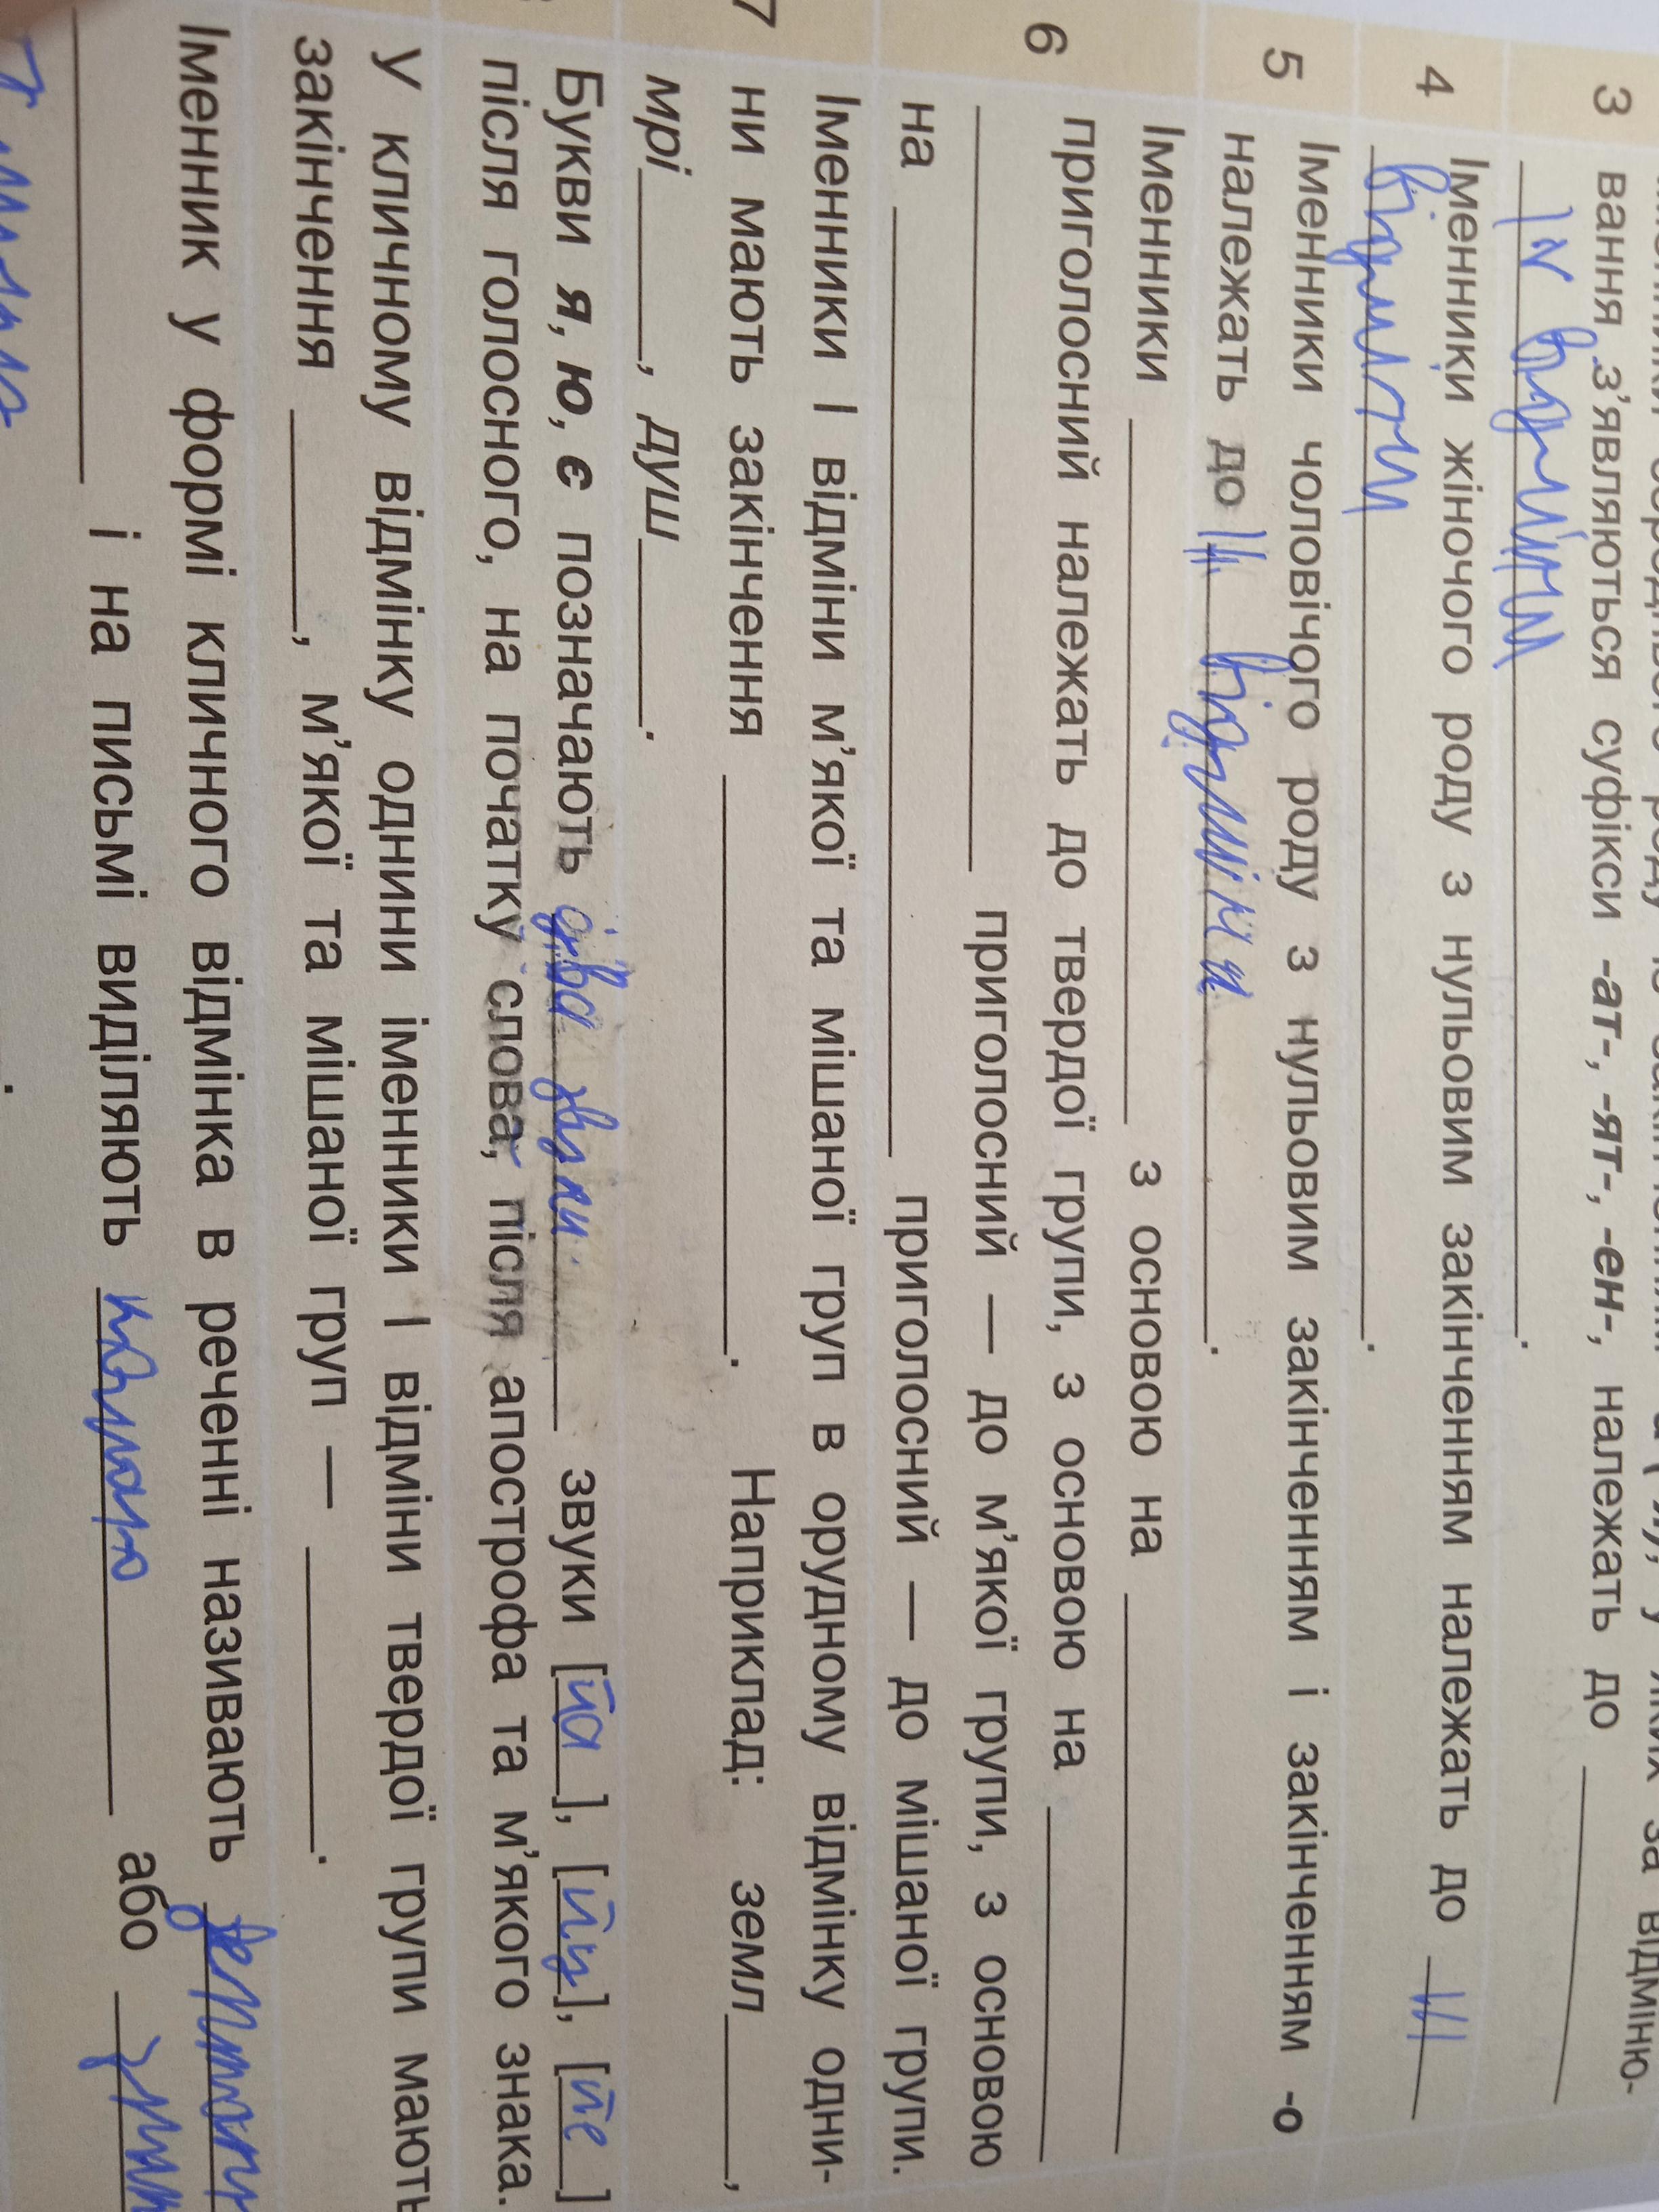 3 вання з'являються суфікси -ат-, -ят-, -ен-, належать до
IV відміни.
4 Іменники жіночого роду з нульовим закінченням належать до III
відміни.
5 Іменники чоловічого роду з нульовим закінченням і закінченням -о
належать до II відміни.
6 Іменники з основою на
приголосний належать до твердої групи, з основою на
приголосний — до м'якої групи, з основою
на приголосний — до мішаної групи.
7 Іменники I відміни м'якої та мішаної груп в орудному відмінку одни-
ни мають закінчення . Наприклад: земл ,
мрі , душ .
Букви я, ю, є позначають два звуки звуки [йа], [йу], [йе]
після голосного, на початку слова, після апострофа та м'якого знака.
У кличному відмінку однини іменники I відміни твердої групи мають
закінчення , м'якої та мішаної груп — .
Іменник у формі кличного відмінка в реченні називають
і на письмі виділяють комою або